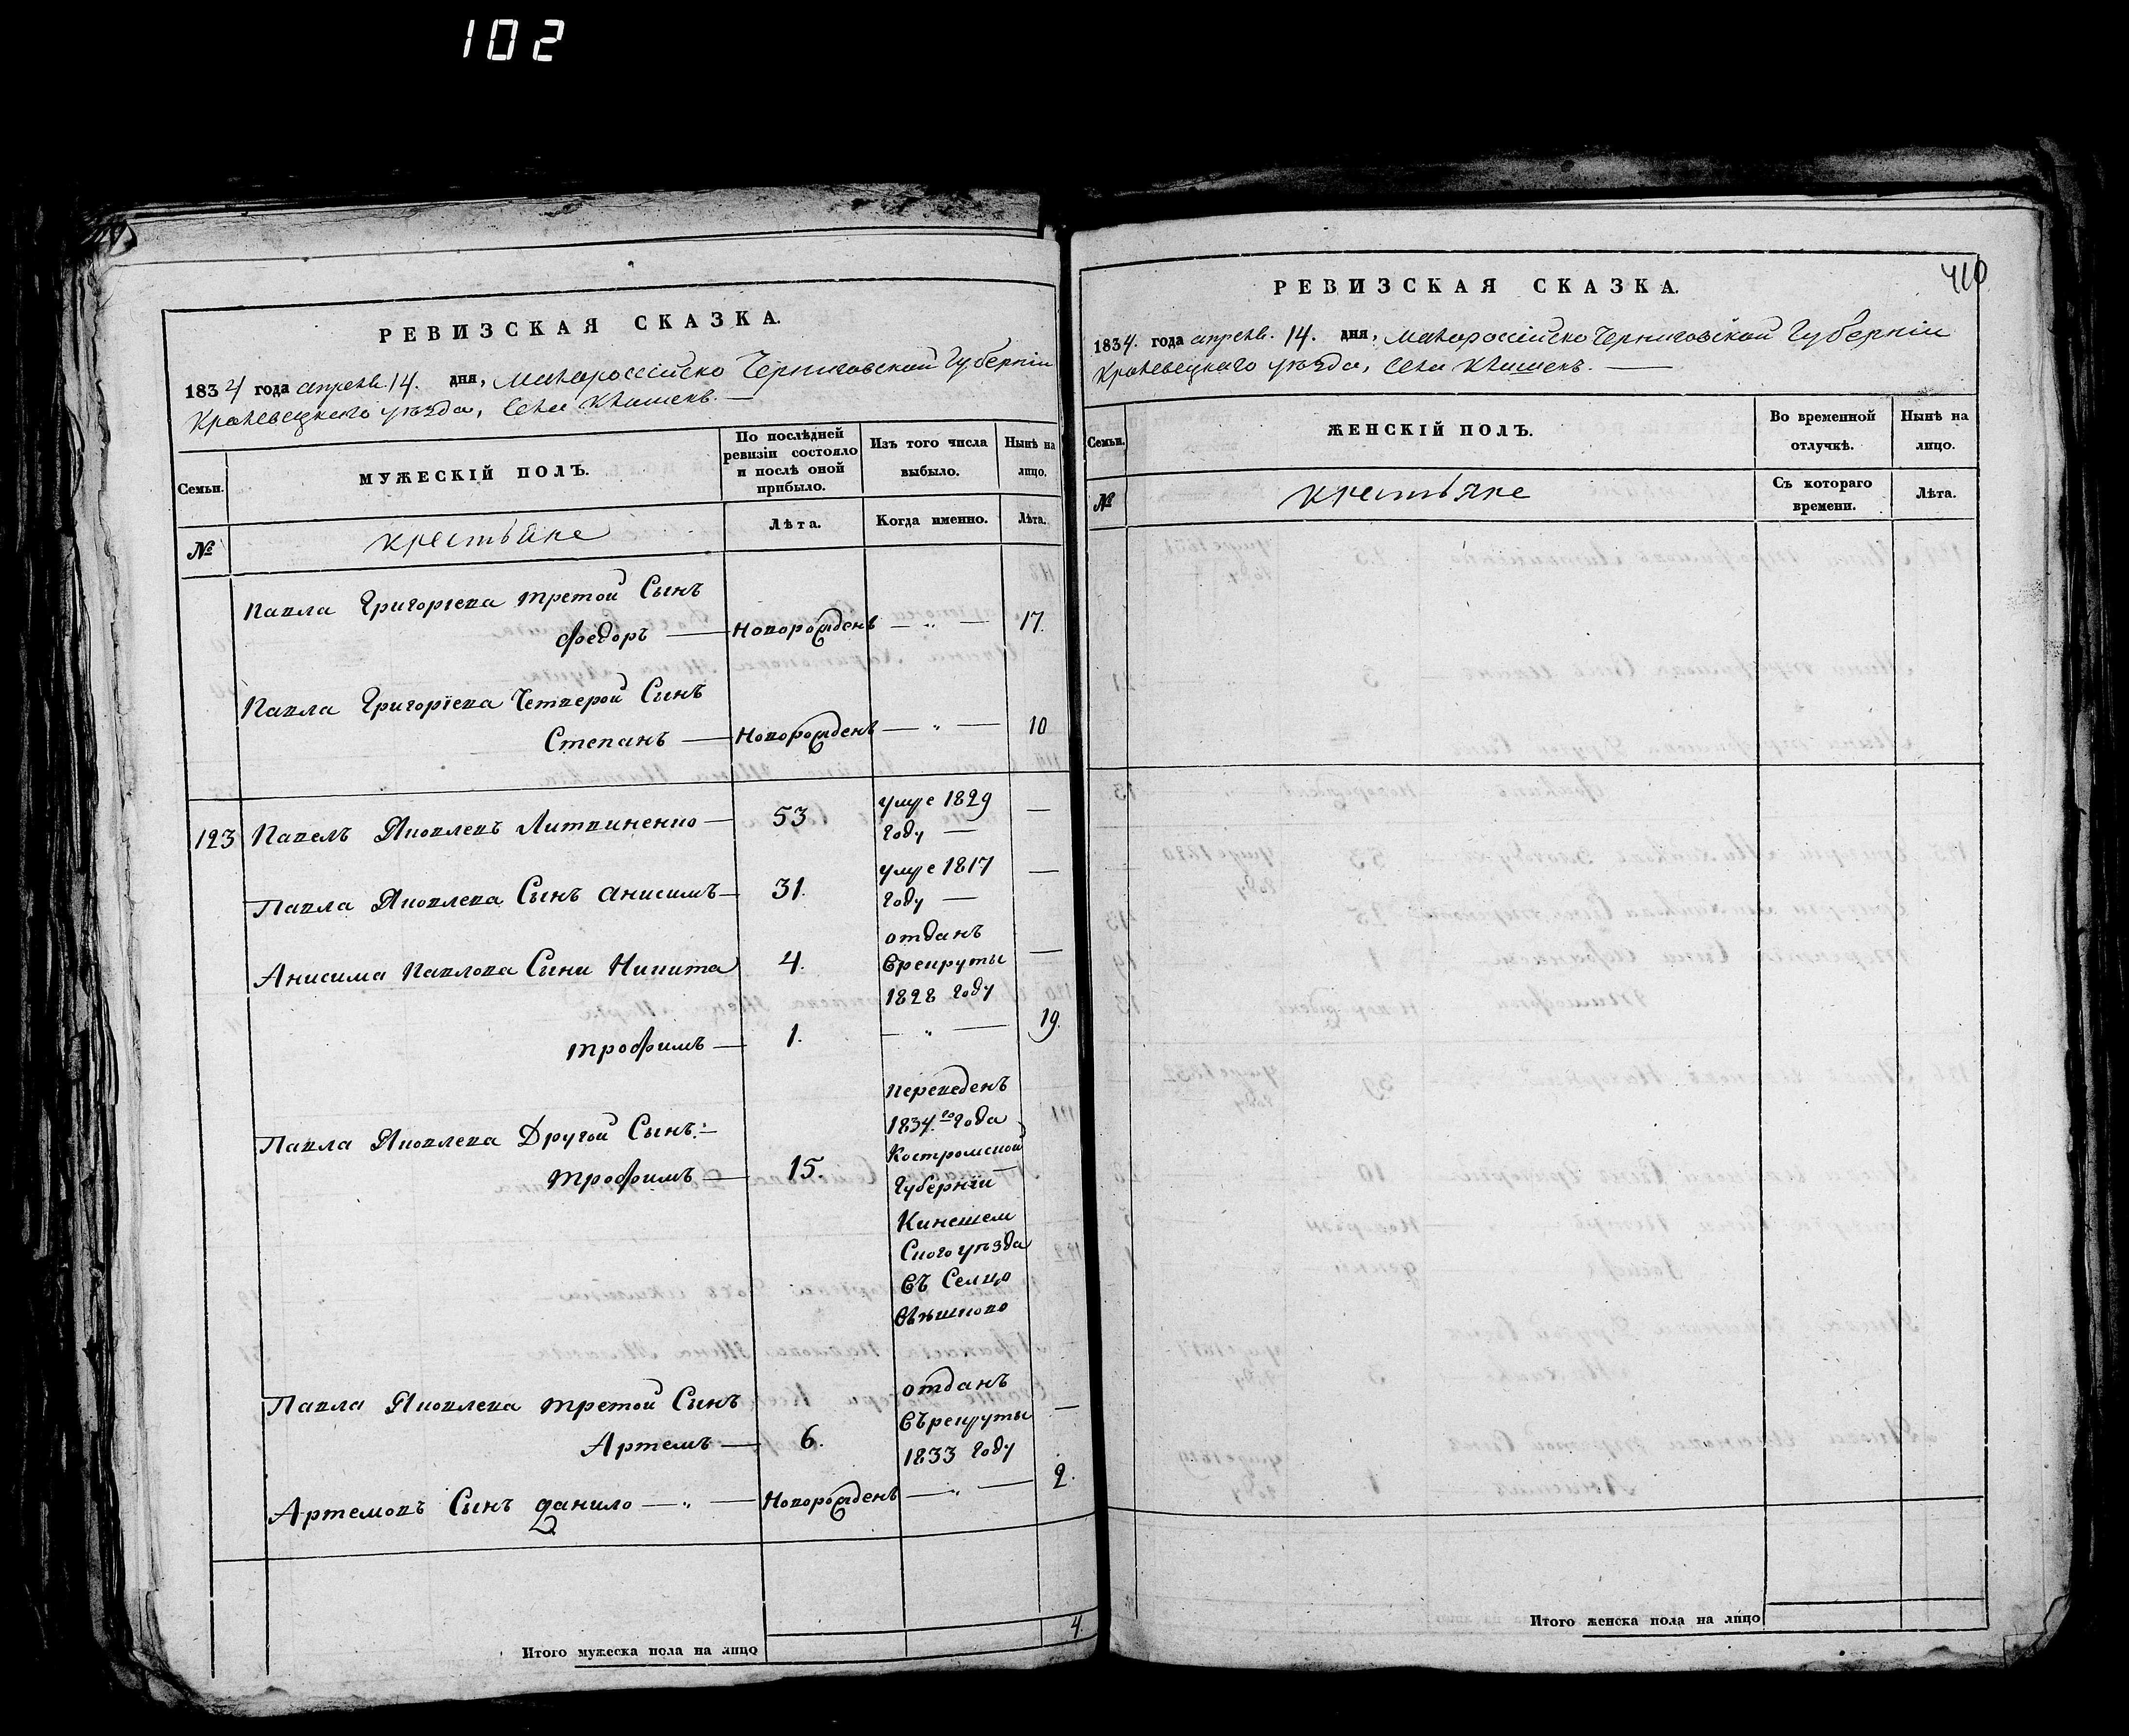 102
РЕВИЗСКАЯ СКАЗКА.
1834 года апреля 14. дня, Малороссійско Черниговской Губерніи
Кролевецкаго уѣзда, Села Клишекъ.
Семьи.
МУЖЕСКІЙ ПОЛЪ.
По послѣдней ревизіи состояло и послѣ оной прибыло.
Изъ того числа выбыло.
Нынѣ на лицо.
№
крестьяне
Лѣта.
Когда именно.
Лѣта.
Павла Григоріева третой Сынъ
Федоръ — Новорожденъ — „ — 17.
Павла Григоріева Четверой Сынъ
Степанъ — Новорожденъ — „ — 10
123 Павелъ Яковлевъ Литвиненко — 53 умре 1829 —
году —
Павла Яковлева Сынъ Анисимъ — 31. умре 1817 —
году —
Анисима Павлова Сыни Никита 4. отданъ —
Врекруты
1828 году
трофимъ — 1. — „ — 19.
Павла Яковлева Другой Сынъ: —
трофимъ — 15. переведенъ
1834.го года
Костромской
Губерніи —
Кинешем
Скаго уѣзда
въ Селцо
Отданъ
Павла Яковлева третой Сынъ
Артемъ — 6. отданъ —
Въ рекруты
1833 году
Артемовъ Сынъ Данило — „ — Новорожденъ — „ — 2.
Итого мужеска пола на лицо 4.
410
РЕВИЗСКАЯ СКАЗКА.
1834. года апреля. 14. дня, Малороссійско Черниговской Губерніи
Кролевецкаго уѣзда, Села Клишекъ. —
Семьи.
ЖЕНСКІЙ ПОЛЪ.
Во временной отлучкѣ.
Нынѣ на лицо.
№
крестьяне
Съ котораго времени.
Лѣта.
Итого женска пола на лицо